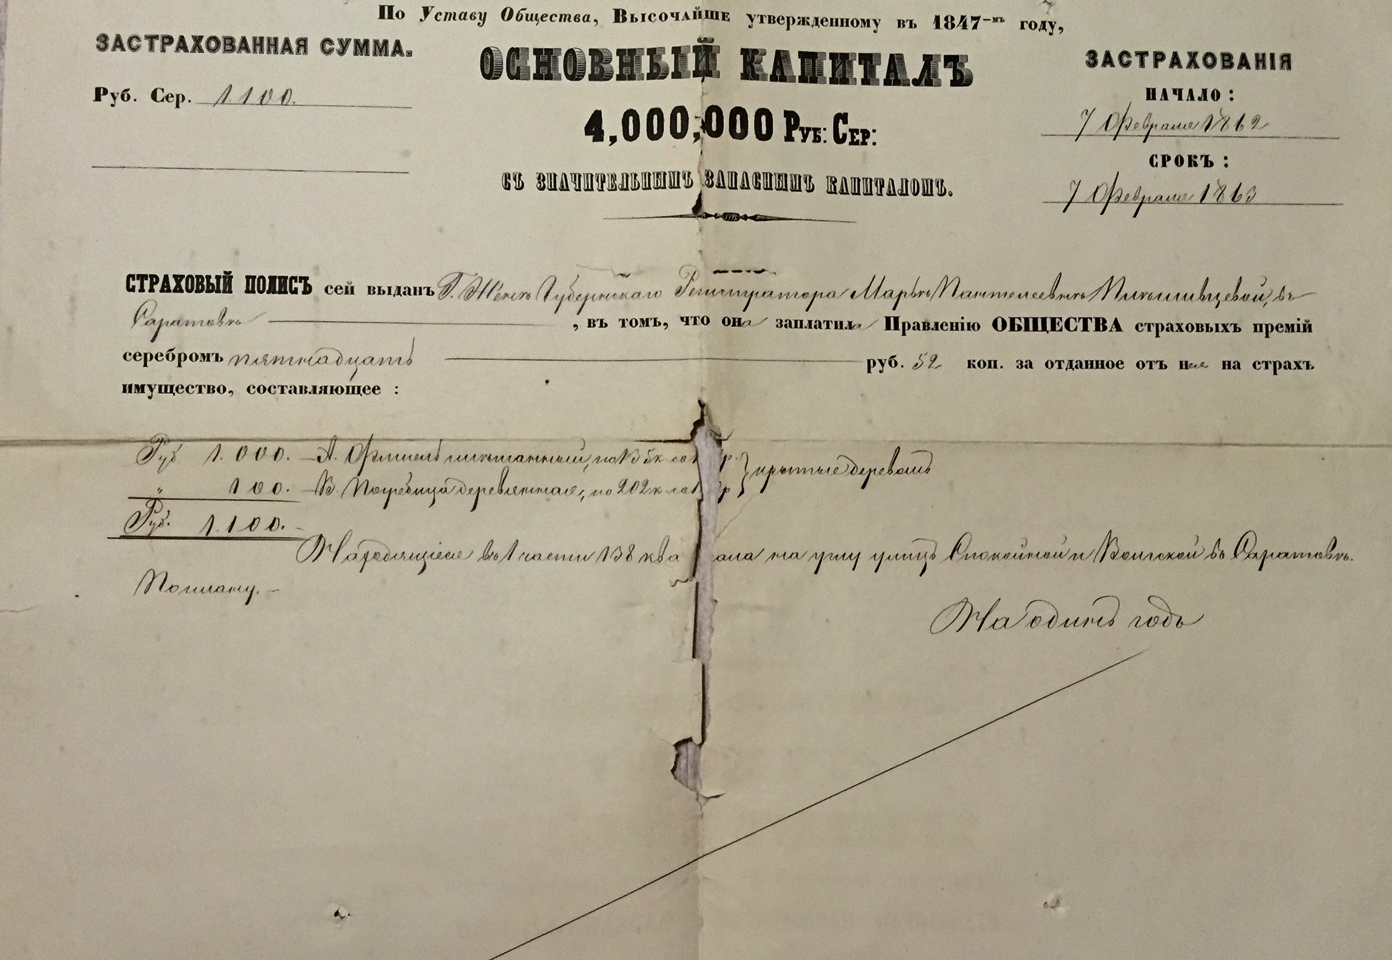 По Уставу Общества, Высочайше утвержденному въ 1847-мъ году,
ЗАСТРАХОВАННАЯ СУММА.
Руб. Сер. 1.100.
ОСНОВНЫЙ КАПИТАЛЪ
4,000,000 Руб: Сер:
СЪ ЗНАЧИТЕЛЬНЫМЪ ЗАПАСНЫМЪ КАПИТАЛОМЪ.
ЗАСТРАХОВАНІЯ
НАЧАЛО:
7 Февраля 1862
СРОКЪ:
7 Февраля 1863
СТРАХОВЫЙ ПОЛИСЪ сей выданъ Г. Женѣ Губернскаго Регистратора Марьѣ Пантелеевнѣ въ
Саратовѣ, въ томъ, что она заплатила Правленію ОБЩЕСТВА страховыхъ премій
серебромъ пятнадцать руб. 52 коп. за отданное отъ нея на страхъ
имущество, составляющее:
Руб. 1.000. — А. Флигель крытые деревомъ
" 100. — В. Погребица деревянная, по 202 к.
Руб. 1.100.
Находящіеся въ 1 части 138 ква ала на углу улицъ Спокойной и въ Саратовѣ.
По плану. —
На одинъ годъ